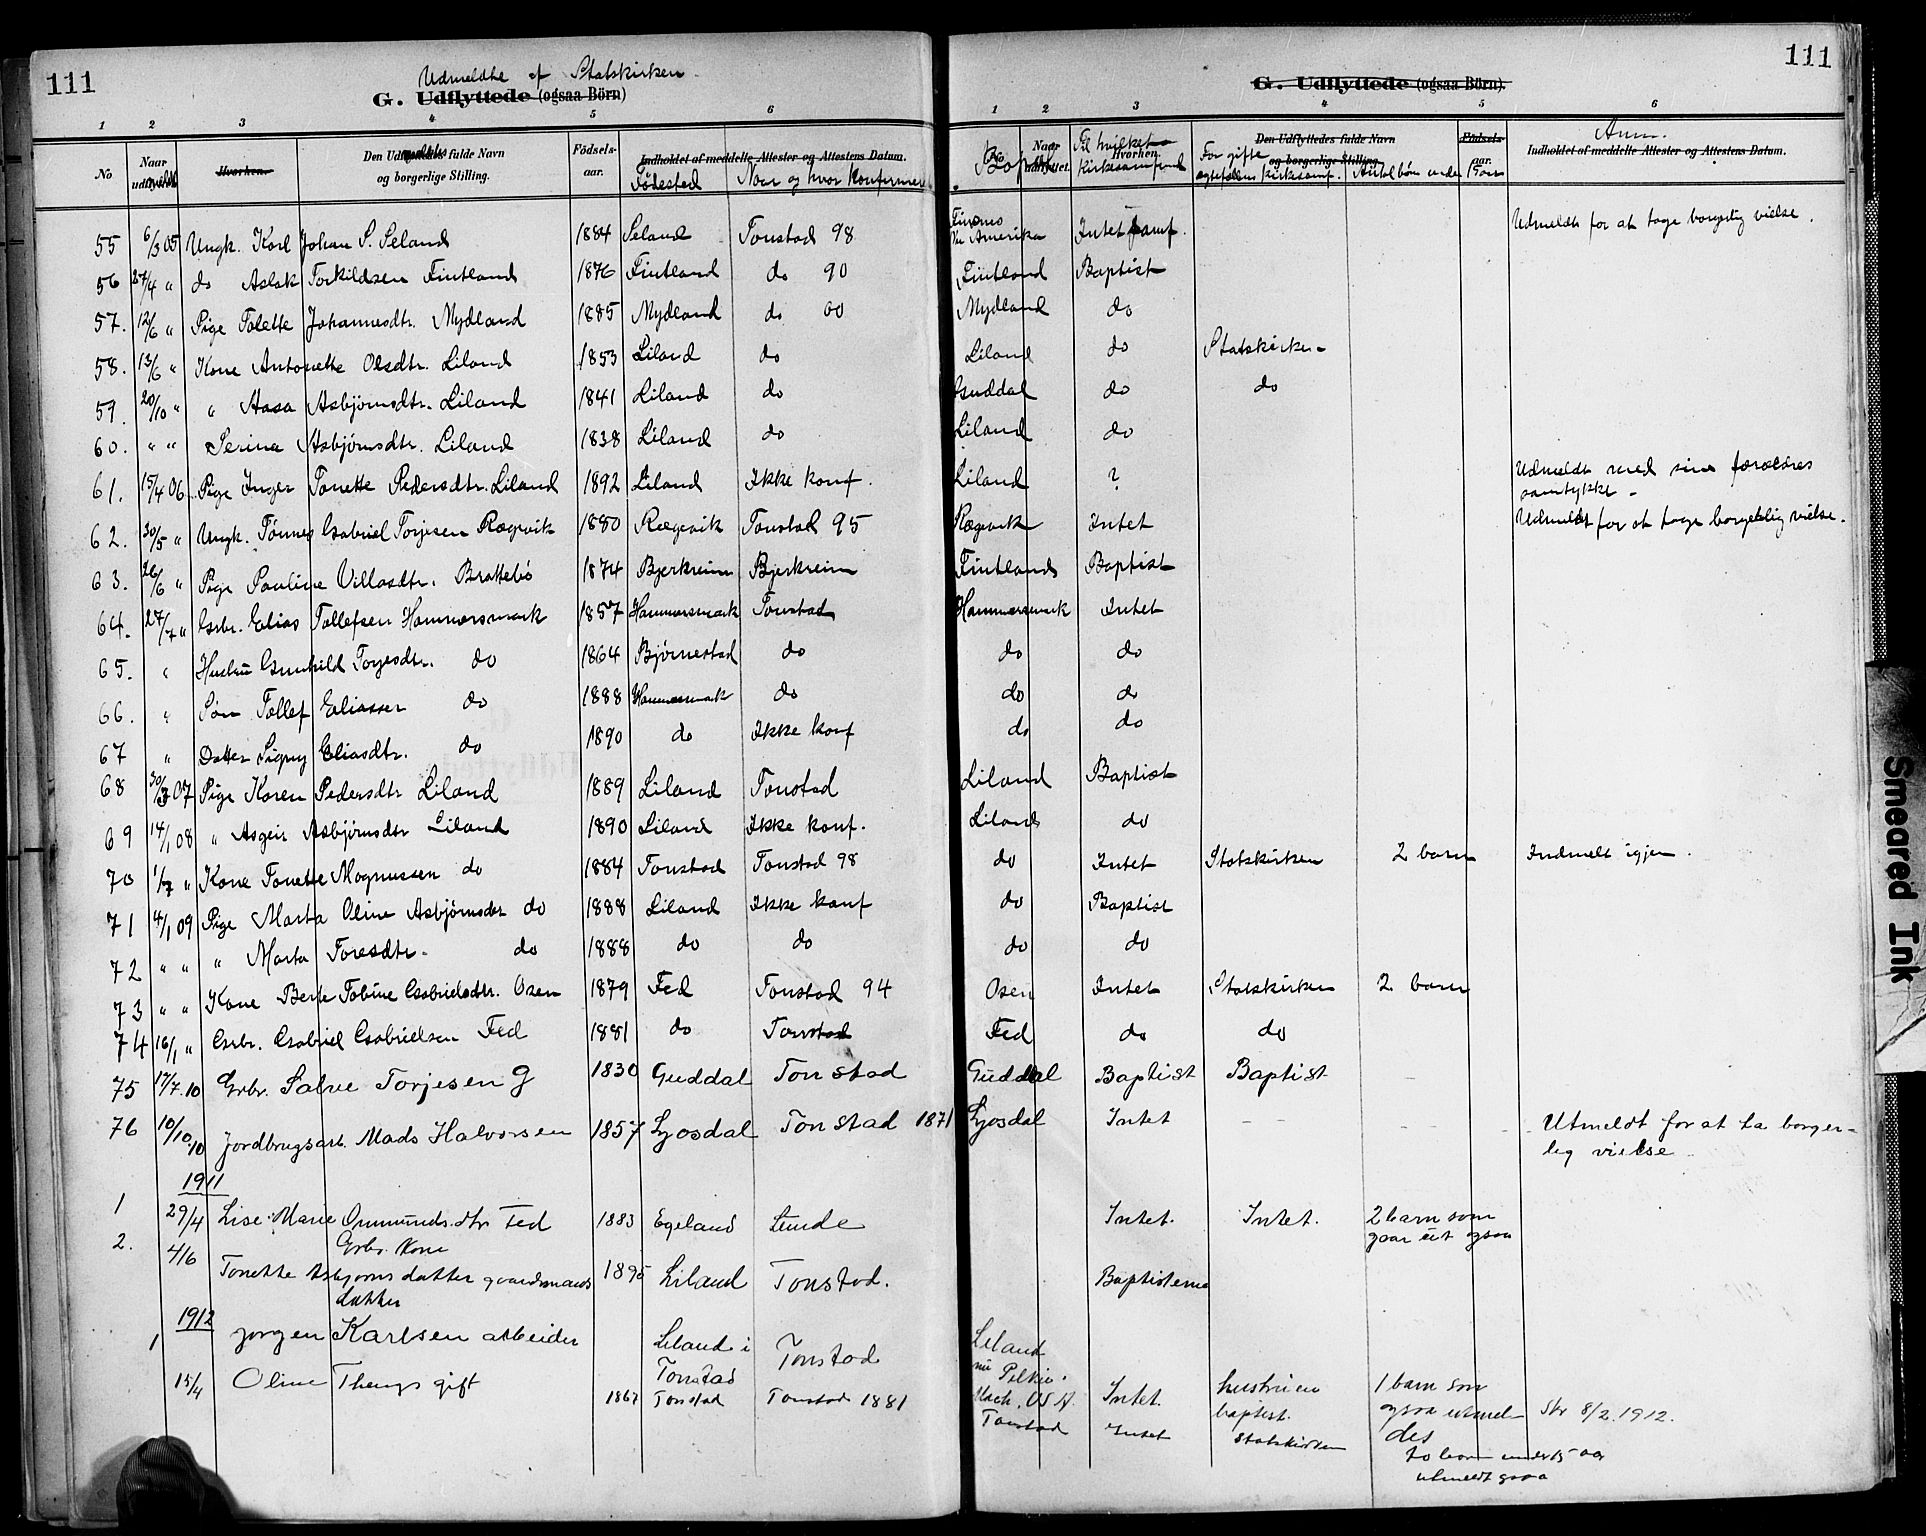 111
Udmeldte af Statskirken.
G. Udflyttede (ogsaa Börn)
1 2 3 4 5 6
No
Naar udmeldt
Hvorhen.
Den Udmeldtes fulde Navn og borgerlige Stilling.
Födsels-aar.
Indholdet af meddelte Attester og Attestens Datum.
Fødested
Naar og hvor konfirmeret
111
G. Udflyttede (ogsaa Börn).
1 2 3 4 5 6
Bopæl
Til hvilket Kirkesamfund
For gifte ægtefællens Kirkesamf.
Antal børn under 15 aar
Den Udflyttedes fulde Navn og borgerlige Stilling.
Födsels-aar.
Anm.
Indholdet af meddelte Attester og Attestens Datum.
55 6/3 05 Ungk. Karl Johan S. Seland 1884 Seland Tonstad 98 Finsnes nu Amerika Intet samf. Udmeldt for at tage borgerlig vielse.
56 27/4 " do Aslak Torkildsen Fintland 1876 Fintland do 90 Fintland Baptist
57. 12/6 " Pige Tolette Johannesdtr. Mydland 1885 Mydland do 00 Mydland do
58. 13/6 " Kone Antonette Olsdtr. Liland 1853 Liland do Liland do Statskirken
59. 20/10 " " Aasa Asbjørnsdtr. Liland 1841 Liland do Guddal do do
60. " " Serina Asbjørnsdtr. Liland 1838 Liland do Liland do
61. 15/4 06 Pige Inger Tonette Pedersdtr. Liland 1892 Liland Ikke konf. Liland ? Udmeldt med sine forældres samtykke -
62. 30/5 " Ungk. Tønnes Gabriel Torjesen Rægevik 1880 Rægevik Tonstad 95 Rægevik Intet Udmeldt for at tage borgerlig vielse.
63. 26/6 " Pige Pauline Villasdtr. Brattebø 1874 Bjerkreim Bjerkreim Fintland Baptist
64. 27/7 " Grbr. Elias Tollefsen Hammersmark 1857 Hammersmark Tonstad Hammersmark Intet
65. " Hustru Gunhild Torjesdtr. do 1864 Bjørnestad do do do
66. " Søn Tollef Eliassen do 1888 Hammersmark do do do
67 " Datter Signy Eliasdtr. do 1890 do Ikke konf do do
68 30/3 07 Pige Karen Pedersdtr Liland 1889 Liland Tonstad Liland Baptist
69 14/1 08 " Asgeir Asbjørnsdtr Liland 1890 Liland Ikke konf. Liland do
70 1/7 " Kone Tonette Magnussen do 1884 Tonstad Tonstad 98 do Intet Statskirken 2 barn Indmeldt igjen.
71 4/1 09 Pige Marta Oline Asbjørnsdtr do 1888 Liland Ikke konf do Baptist
72 " " " Marta Toresdtr. do 1888 do do do do
73 " " Kone Berte Tobine Gabrielsdtr. Osen 1879 Fed Tonstad 94 Osen Intet Statskirken 2 barn
74 16/1 " Grbr. Gabriel Gabrielsen Fed 1881 do Tonstad Fed do do
75 17/7.10 Grbr. Salve Torjesen G 1830 Guddal Tonstad Guddal Baptist Baptist
76 10/10.10 Jordbrugsarb. Mads Halvorsen 1857 Lyosdal Tonstad 1871 Lyosdal Intet - - Utmeldt for at ta borger-
lig vielse
1911
1 29/4 Lise Marie Ommunds.dtr Fed 1883 Egeland Lunde Intet. Intet. 2 barn som
Grbr. Kone gaar ut ogsaa
2. 4/6 Tonette Asbjørns datter gaardmands 1895 Liland Tonstad. Baptisterne
datter
1912
1 Jørgen Karlsen arbeider Liland i Tonstad Tonstad Liland nu Pelkie Mach. USA. Intet. hustruen baptist. 1 barn som ogsaa utmeldes Skr 8/2.1912.
15/4 Oline Thengs gift 1867 Tonstad Tonstad 1881 Tonstad Intet Statskirken to barn under 15 aar
utmeldt ogsaa
Smeared Ink